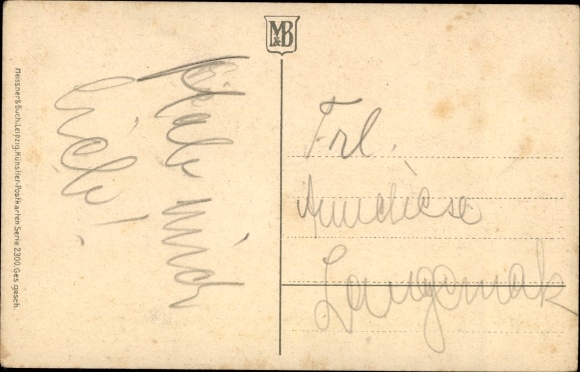 M&B
Meissner & Buch, Leipzig. Künstler-Postkarten Serie 2300. Ges. gesch.
Habe mich
lieb!
Frl.
Anneliese
Langemak